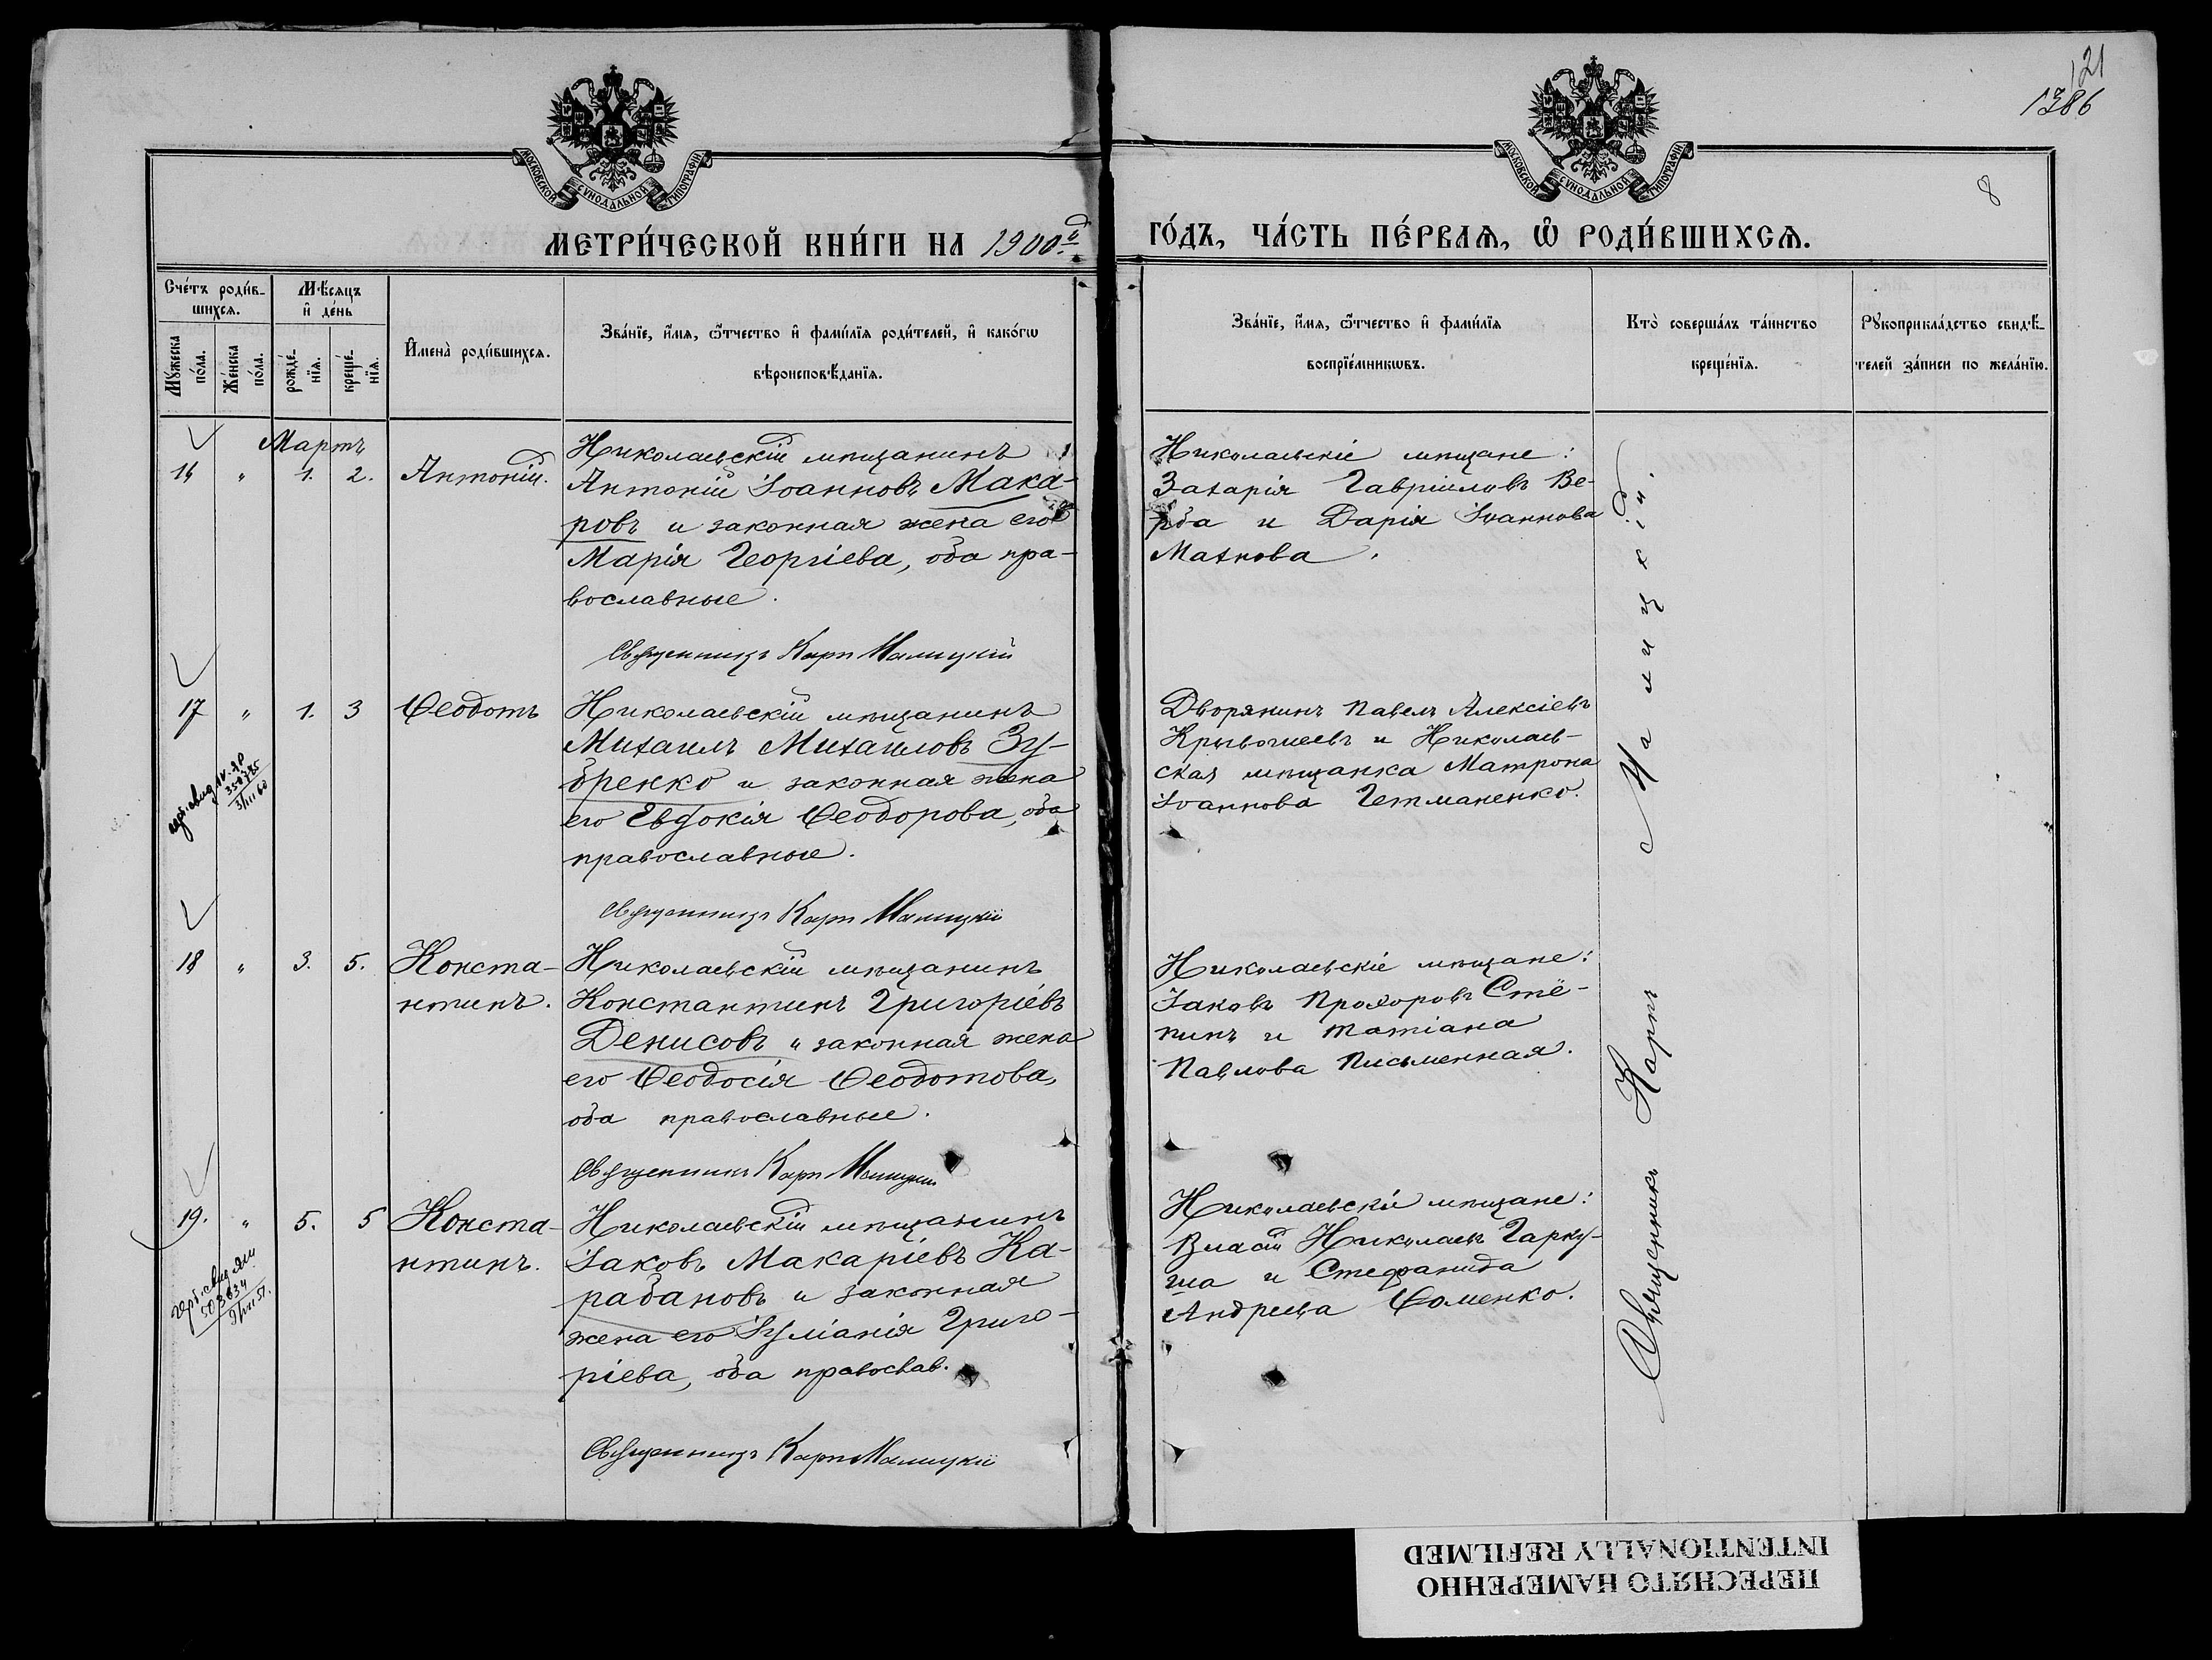 121
1386
8
МОСКОВСКОЙ СѴНОДАЛЬНОЙ ТИПОГРАФІИ
МОСКОВСКОЙ СѴНОДАЛЬНОЙ ТИПОГРАФІИ
МЕТРИ́ЧЕСКОЙ КНИ́ГИ НА 1900й
ГО́ДЪ, ЧА́СТЬ ПЕ́РВАѦ, Ѽ РОДИ́ВШИХСѦ.
Сче́тъ роди́в-
шихсѧ.
Мѣ́сѧцъ
и҆ де́нь
Мꙋ́жеска по́ла.
Же́нска по́ла.
рожде́-
нїѧ.
креще́-
нїѧ.
И҆мена̀ роди́вшихсѧ.
Зва́нїе, и҆́мѧ, ѻ҆́тчество и҆ фами́лїѧ роди́телей, и҆ како́гѡ
вѣроисповѣ́данїѧ.
Зва́нїе, и҆́мѧ, ѻ҆́тчество и҆ фами́лїѧ
воспрїе́мникѡвъ.
Кто̀ соверша́лъ та́инство
креще́нїѧ.
Рꙋкоприкла́дство свидѣ́-
телей за́писи по жела́нїю.
Мартъ
16 " 1. 2. Антоній.
Николаевскій мѣщанинъ
Антоній Іоанновъ Мака-
ровъ и законная жена его
Марія Георгіева, оба пра-
вославные.
Священникъ Карп Малицкій
Николаевскіе мѣщане:
Захарія Гавріиловъ Ве-
рба и Дарія Іоаннова
Махнова.
17 " 1. 3 Ѳеодотъ
Николаевскій мѣщанинъ
Михаилъ Михаиловъ Зу-
бренко и законная жена
его Евдокія Ѳеодорова, оба
православные.
Священникъ Карп Малицкій
Дворянинъ Павелъ Алексіевъ
и Николаев-
ская мѣщанка Матрона
Іоаннова Гетманенко.
18 " 3. 5. Конста-
нтинъ.
Николаевскій мѣщанинъ
Константинъ Григоріевъ
Денисовъ и законная жена
его Ѳеодосія Ѳеодотова,
оба православные.
Священникъ Карп Малицкій
Николаевскіе мѣщане:
Іаковъ Прохоровъ Стё-
пинъ и Татіана
Павлова Письменная.
19. " 5. 5 Конста-
нтинъ.
Николаевскій мѣщанинъ
Іаковъ Макаріевъ Ка-
рабановъ и законная
жена его Іуліанія Григо-
ріева, оба православ.
Священникъ Карп Малицкій
Николаевскіе мѣщане:
Власій Николаев Гарку-
ша и Стефанида
Андреева Ѳоменко.
Священникъ Карпъ Малицкій.
ПЕРЕСНЯТО НАМЕРЕННО
INTENTIONALLY REFILMED